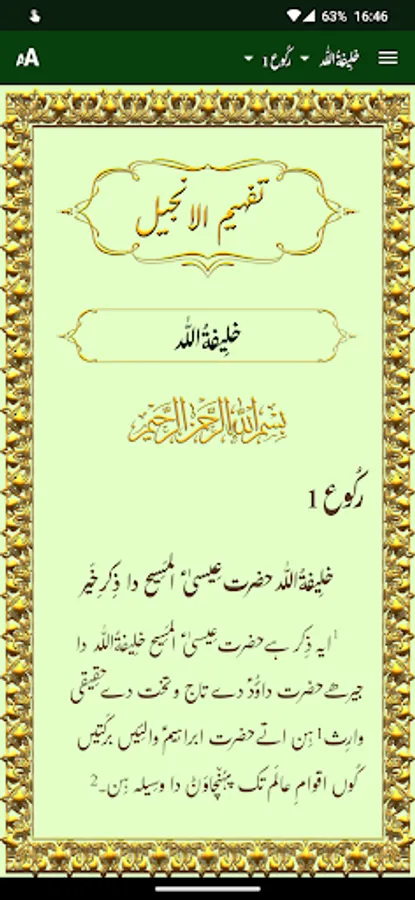 63% 16:46
AA رُکُوع 1 خلِیفۃُ اللہ
تفہیم الانجیل
خلِیفۃُ اللہ
بِسْمِ اللہِ الرَّحْمٰنِ الرَّحِیْمِ
رُکُوع 1
خلِیفۃُ اللہ حضرت عِیسیٰؑ المَسِیح دا ذِکرِ خَیر
1ایہ ذِکر ہے حضرت عِیسیٰؑ المَسِیح خلِیفۃُ اللہ دا
جیرھے حضرت داوُدؑ دے تاج و تخت دے حقِیقی
وارِث1 ہِن اتے حضرت ابراہیمؑ والئِیں برکتیں
کُوں اقوامِ عالَم تک پہُنّچاوَݨ دا وسِیلہ ہِن۔2